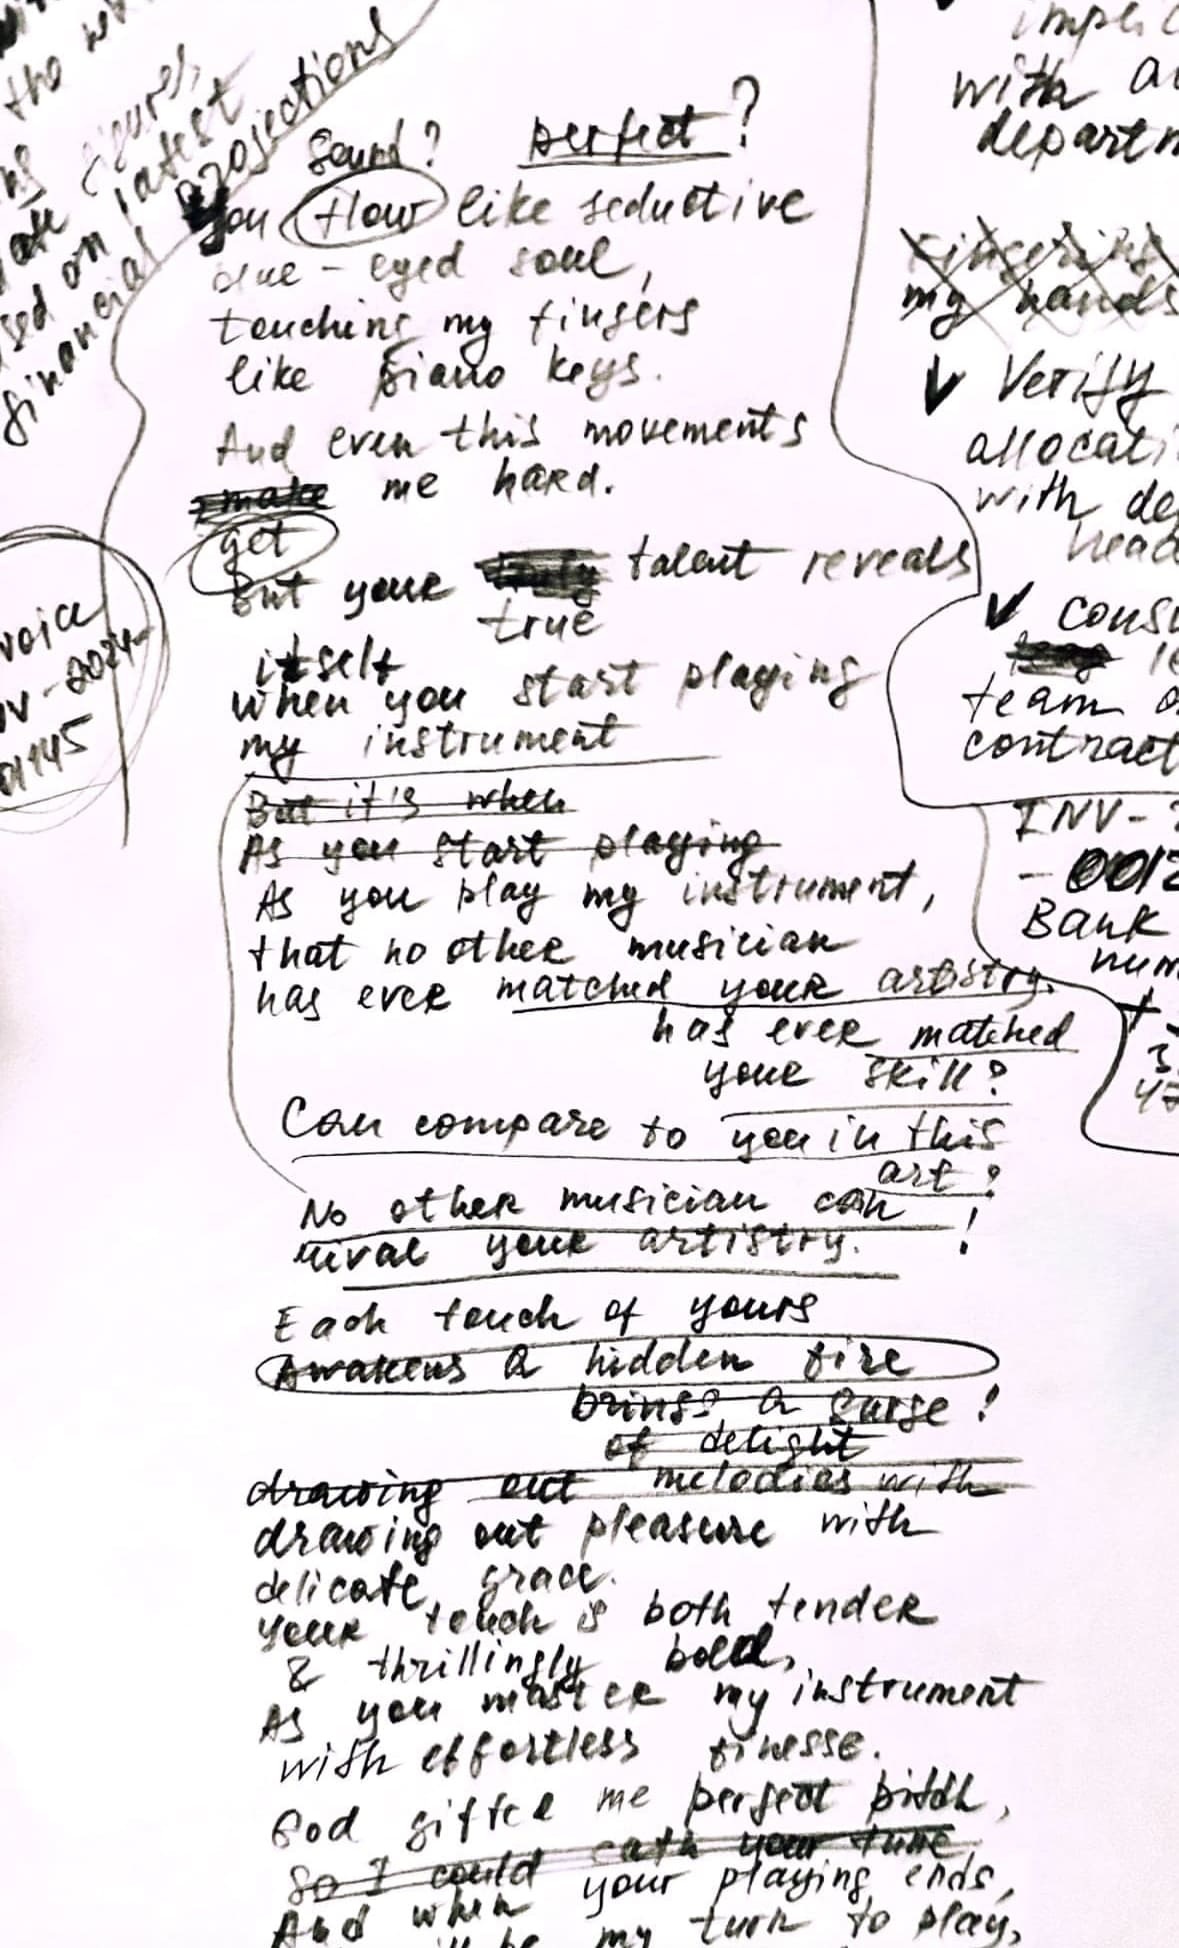 the
figures,
latest
based on projections
financial
Invoice
INV-2024-
01145
Sound? perfect?
You flow like seductive
blue-eyed soul,
touching my fingers
like piano keys.
And even this movements
make me hard.
get
But your truly talent reveals
true
itself
when you start playing
my instrument
But it's when
As you start playing
As you play my instrument,
that no other musician
has ever matched your artistry.
has ever matched
your skill?
Can compare to you in this
art?
No other musician can
rival your artistry. !
Each touch of yours
Awakens a hidden fire
brings a surge !
of delight
drawing out melodies with
drawing out pleasure with
delicate grace.
Your touch is both tender
& thrillingly bold,
As you master my instrument
with effortless finesse.
God gifted me perfect pitch,
So I could cath your tune,
And when your playing ends,
my turn to play,
with
departm
fingering
my hands
✓ Verify
allocati
with de
head
✓ consu
team
contract
INV-
-0012
Bank
num